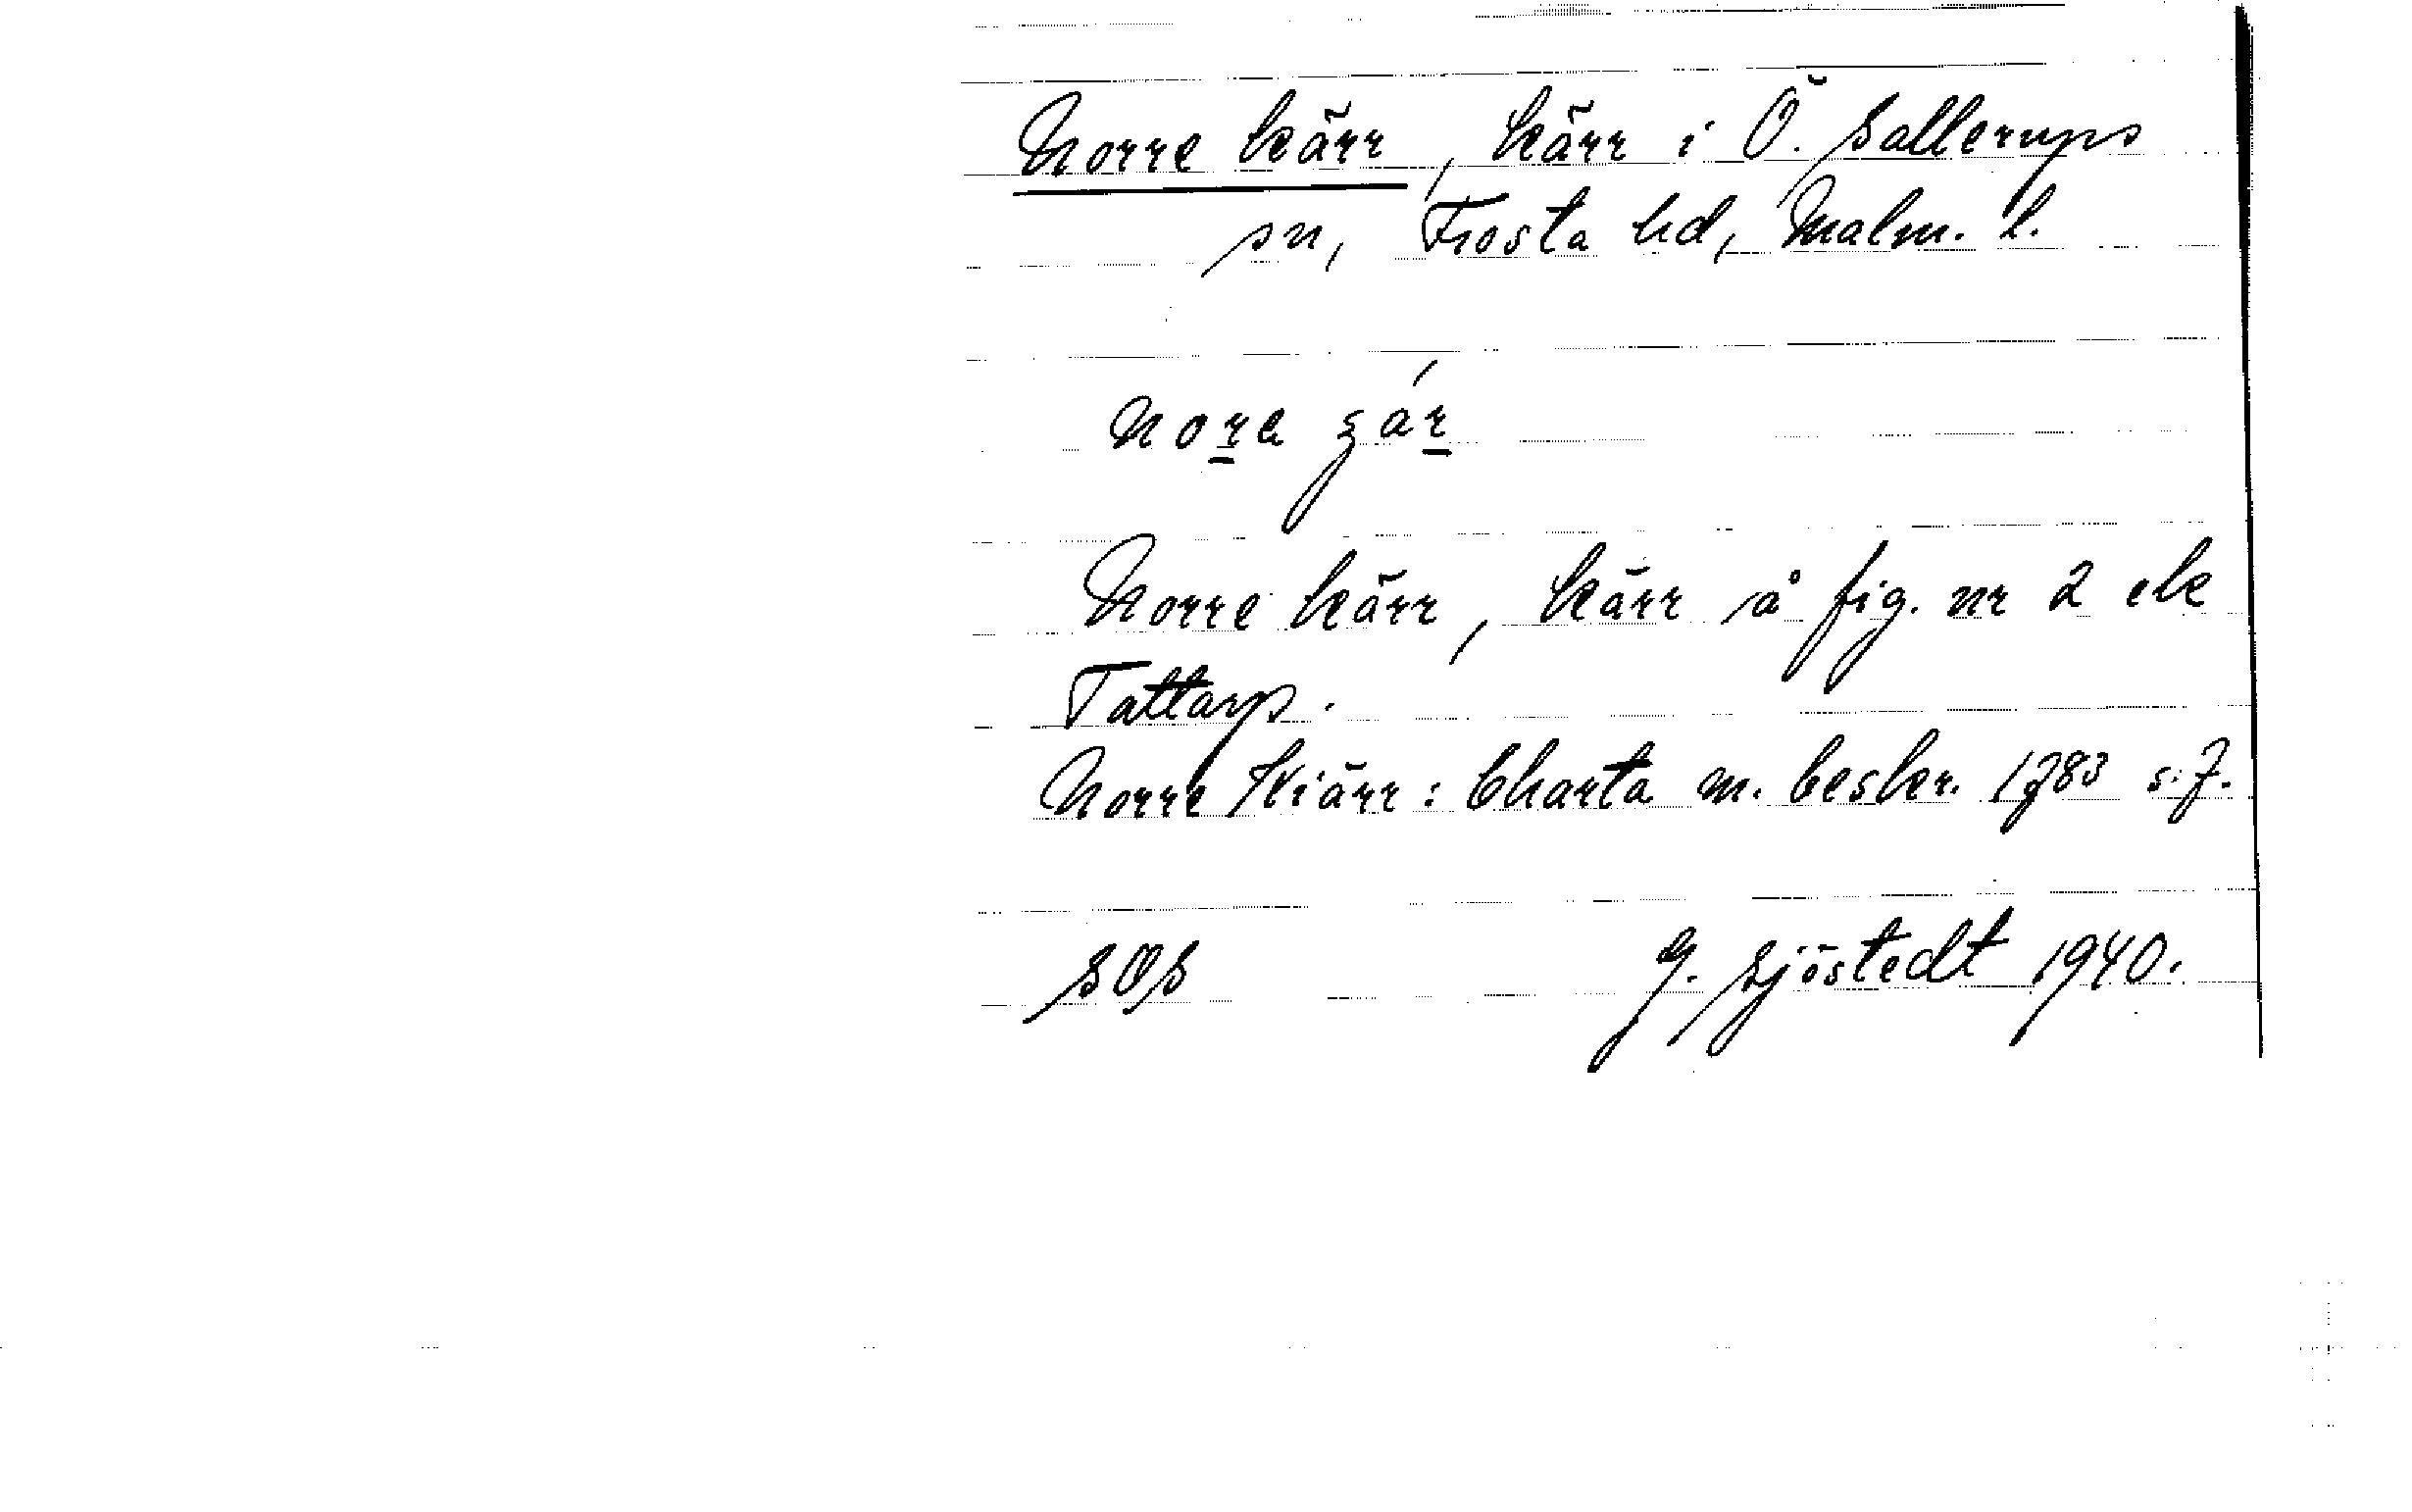 Norre kärr, kärr i Ö. Sallerups
sn, Frosta hd, Malm. l.
Norre kärr, kärr å fig. nr 2 ek
Tattarp.
Norre Kiärr: Charta m. beskr. 1783 s. 7.
SOS G. Sjöstedt 1940.